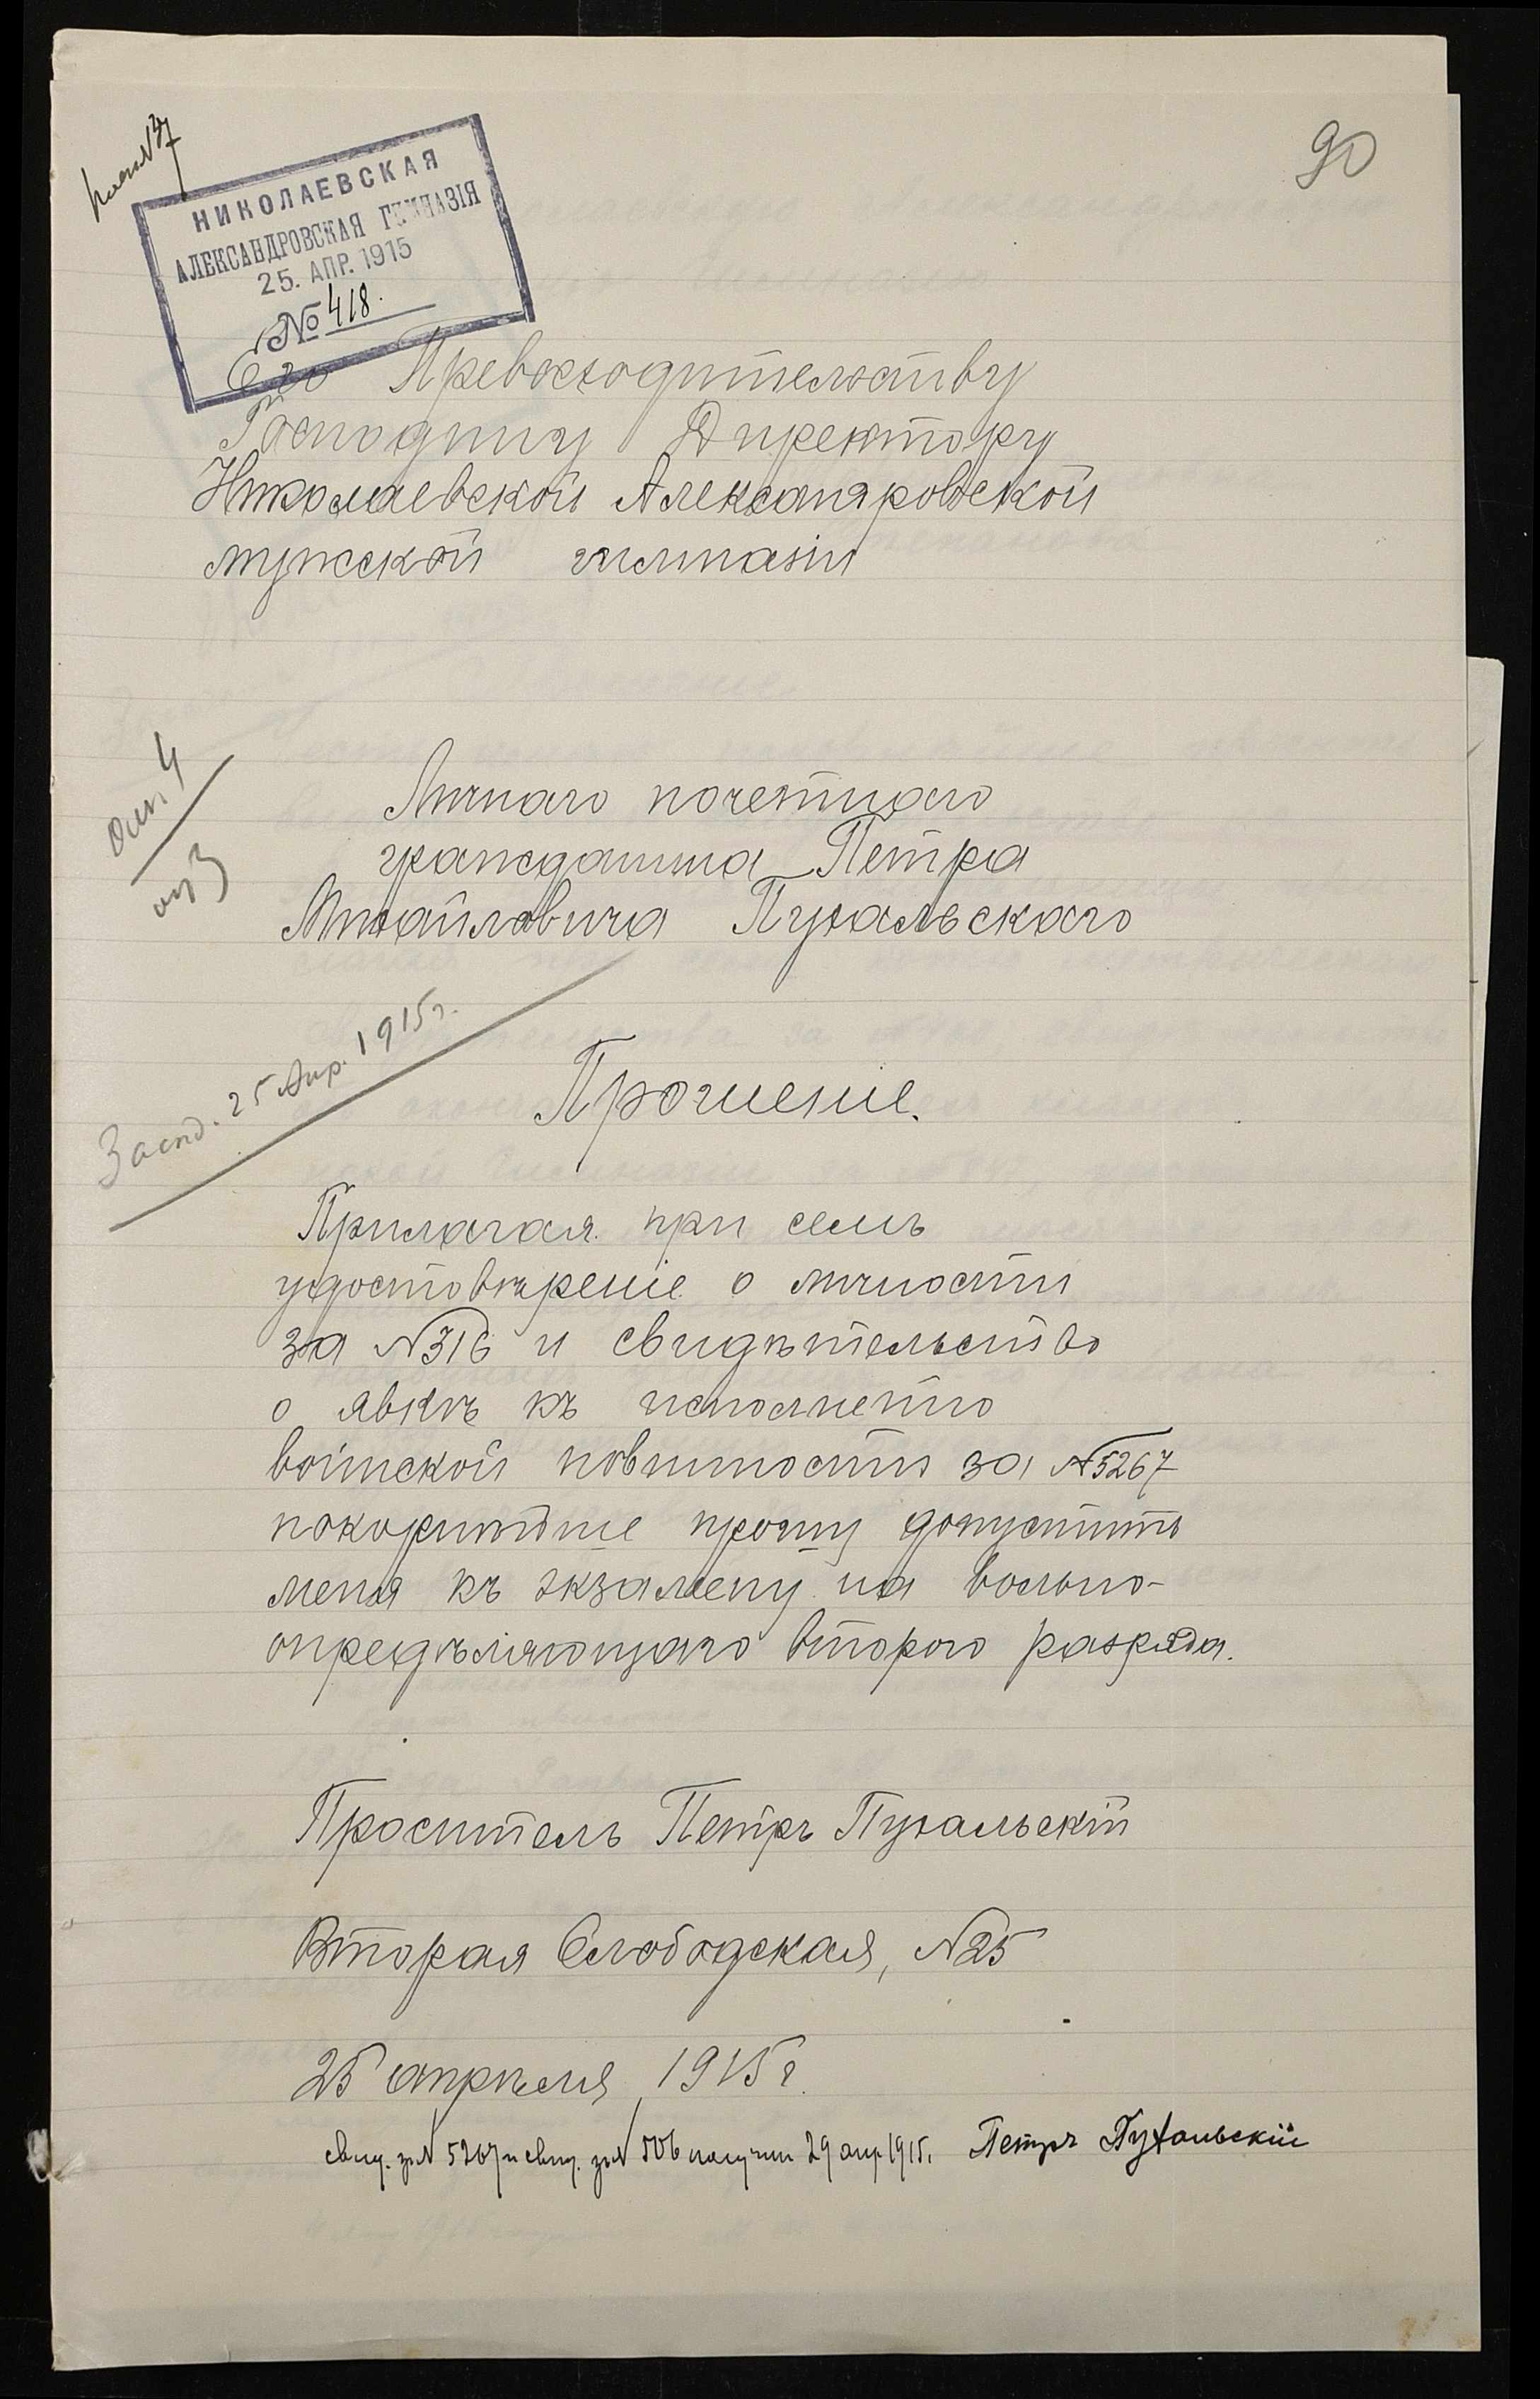 90
НИКОЛАЕВСКАЯ
АЛЕКСАНДРОВСКАЯ ГИМНАЗІЯ
25. АПР. 1915
№ 418.
Его Превосходительству
Господину Директору
Николаевской Александровской
мужской гимназіи
Личнаго почетнаго
гражданина Петра
Михайловича Пухальскаго
Засѣд. 25 Апр. 1915 г.
Прошеніе.
Прилагая при семъ
удостовѣреніе о личности
за №316 и свидѣтельство
о явкѣ къ исполненію
воинской повинности за №5267
покорнѣйше прошу допустить
меня къ экзамену на вольно-
опредѣляющаго второго разряда.
Проситель Петръ Пухальскій
Вторая Слободская, №25
25 апрѣля 1915 г.
свид. за № 5267 и свид. за № 506 получил 29 апр. 1915. Петръ Пухальскій